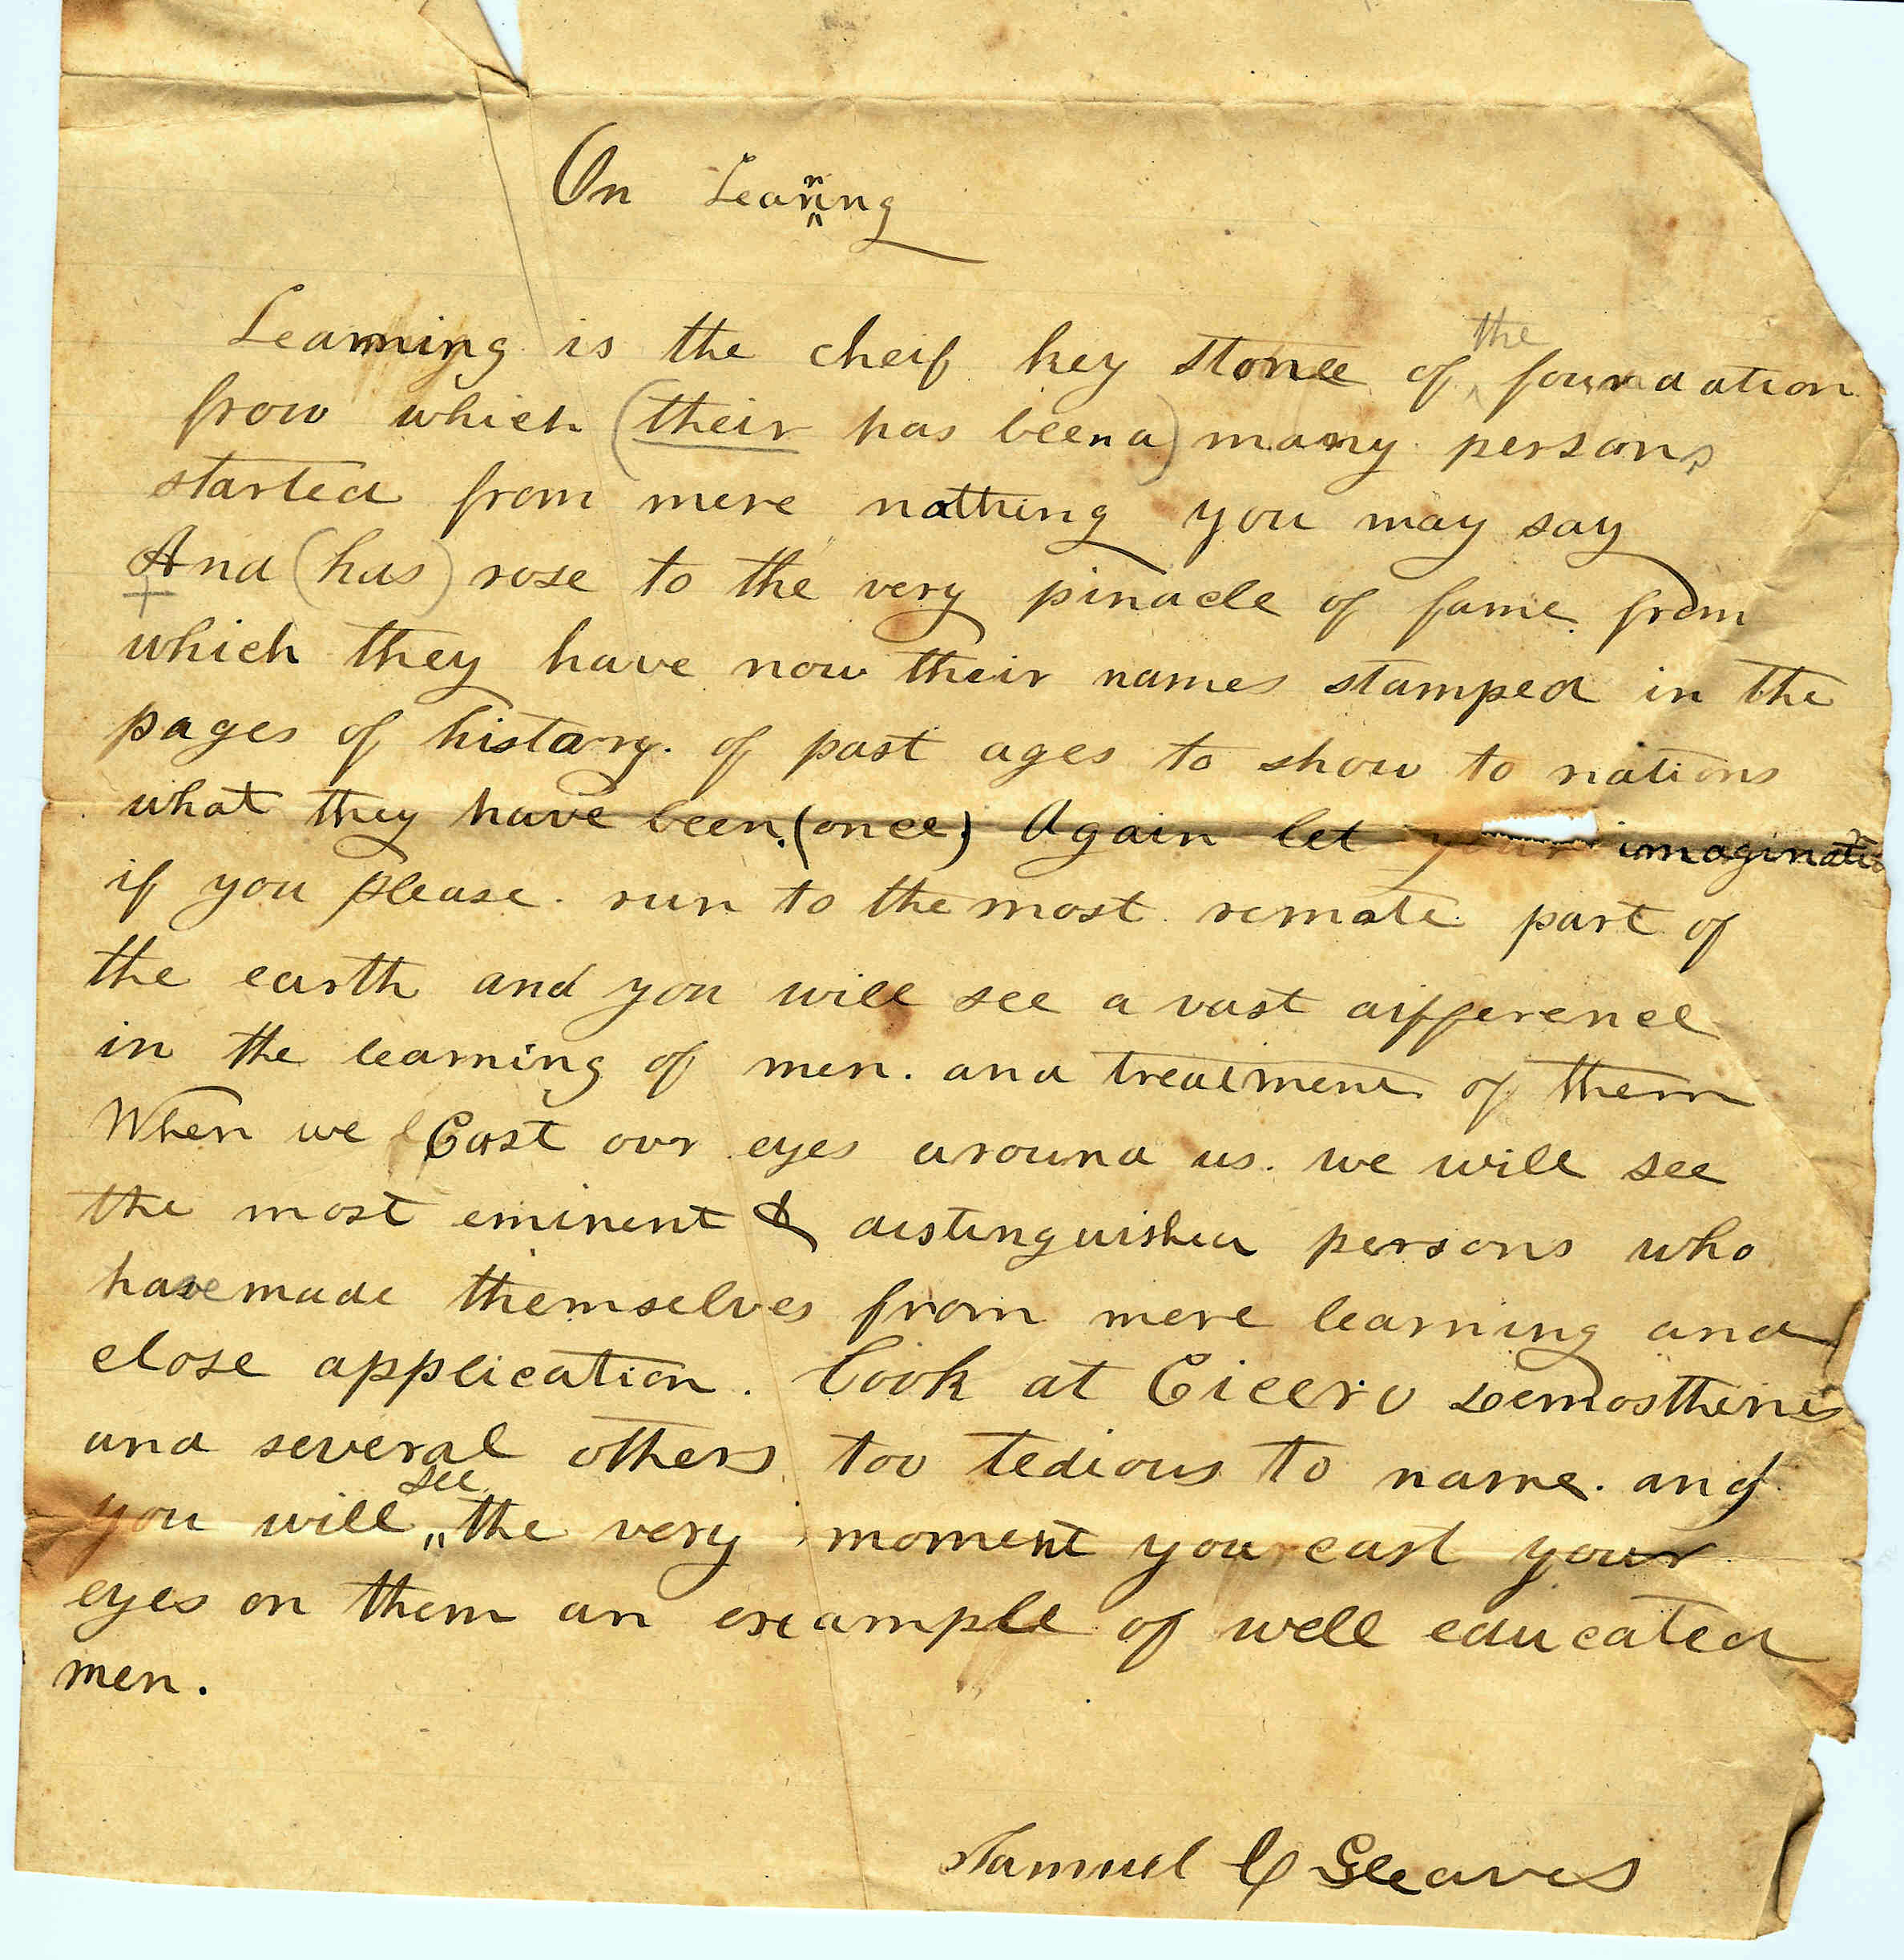 On Learning
Learning is the cheif key stone of the foundation
from which (their has been a) many persons
started from mere nothing you may say
And (has) rose to the very pinacle of fame from
which they have now their names stamped in the
pages of history. of past ages to show to nations
what they have been. (once) Again let your imaginatio
if you please. run to the most remote part of
the earth and you will see a vast difference
in the learning of men. and treatment of them
When we Cast our eyes around us. we will see
the most eminent & distinguished persons who
have made themselves from mere learning and
close application. Look at Cicero Demosthines
and several others too tedious to name. and
you will see the very moment you cast your
eyes on them an example of well educated
men.
Samuel C Gleaves